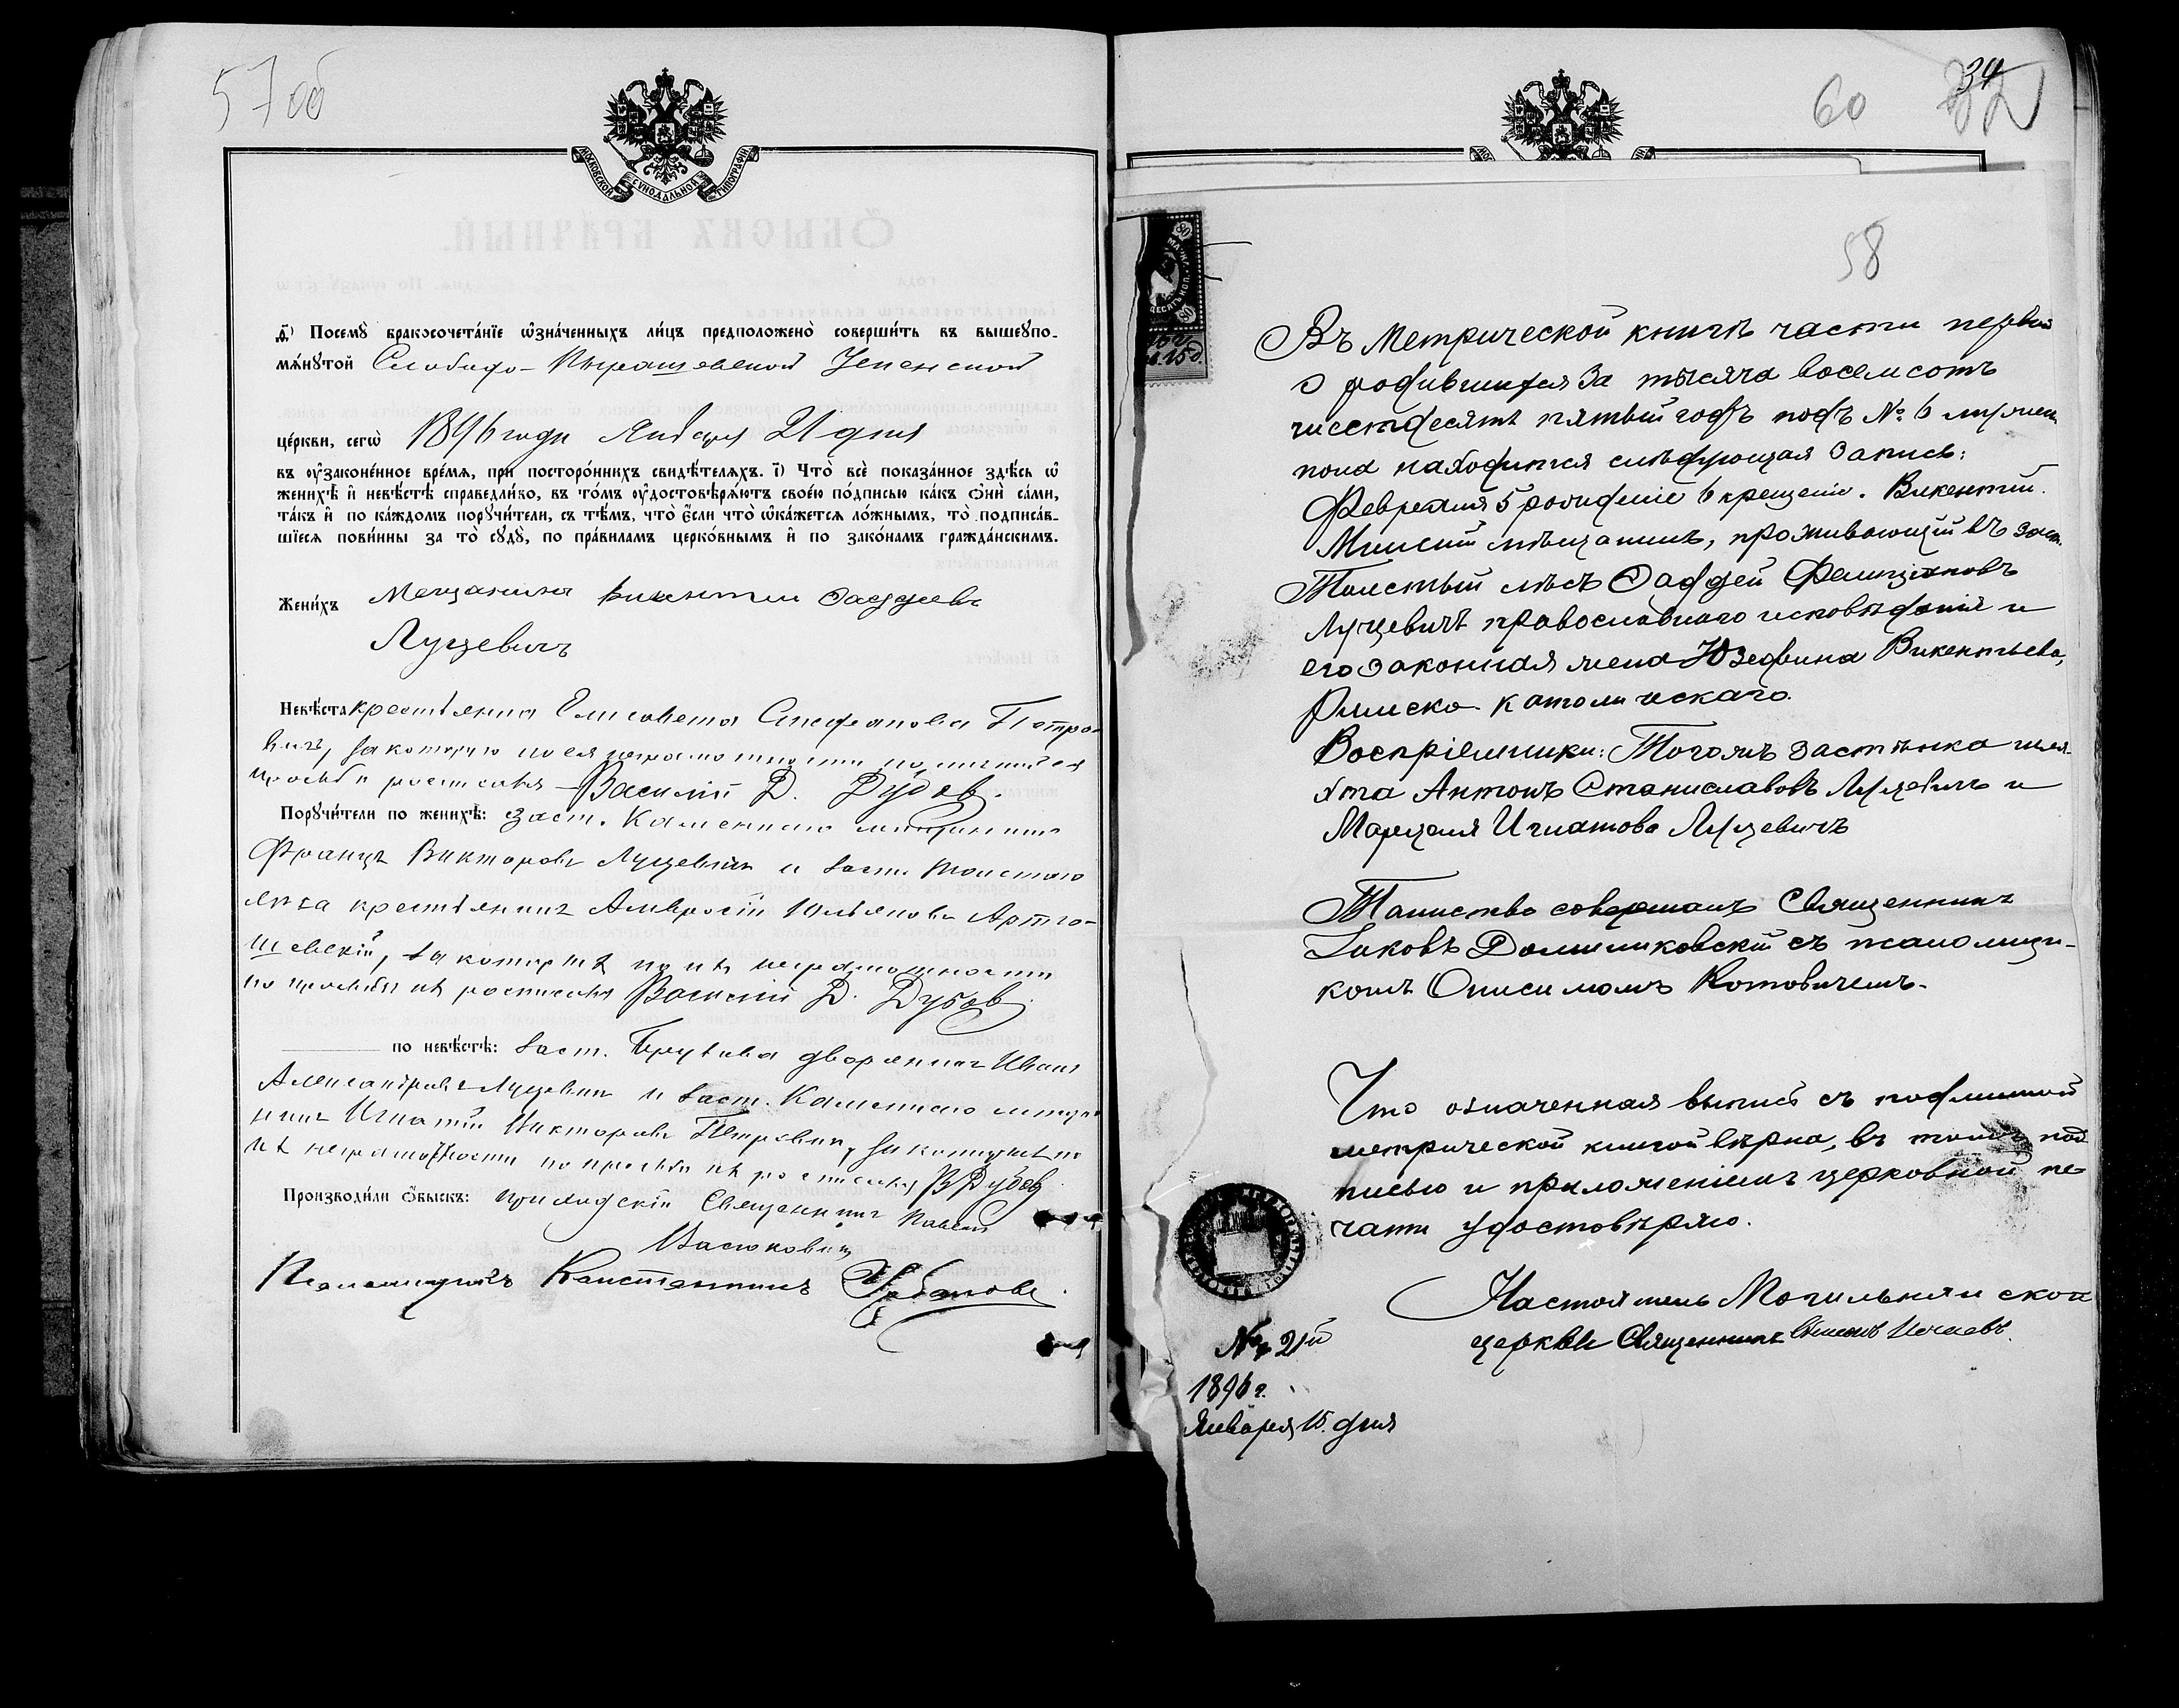 57 об
МОСКОВСКОЙ СѴНОДАЛЬНОЙ ТИПОГРАФІИ
Посемѹ бракосочетаніе ѡзначенныхъ лицъ предположено совершить въ вышеѹпо-
мянѹтой Слободо-Пырашевской Успенской
церкви, сегѡ 1896 года Января 21 дня
въ ѹзаконенное время, при постороннихъ свидѣтеляхъ. і) Что все показанное здѣсь ѡ
женихѣ и невѣстѣ справедливо, въ томъ ѹдостовѣряютъ своею подписью какъ ѻни сами,
такъ и по каждомъ порѹчители, съ тѣмъ, что если что ѡкажется ложнымъ, то подписав-
шіеся повинны за то сѹдѹ, по правиламъ церковнымъ и по законамъ гражданскимъ.
Женихъ Мещанинъ Викентій Ѳаддеевъ
Луцевичъ
Невѣста крестьянка Елисавета Стефанова Петро-
вичъ, за которую по ея неграмотности по личной ея
просьбѣ росписался Василій Д. Дубовъ.
Порѹчители по женихѣ: заст. Каменного мѣщанинъ
Францъ Викторовъ Луцевичъ и заст. Толстого
лѣса крестьянинъ Амвросій Юльяновъ Арто-
шевскій, за которыхъ по ихъ неграмотности
по просьбѣ ихъ росписался Василій Д. Дубовъ
по невѣстѣ: заст. дворянинъ Иванъ
Александровъ Луцевичъ и заст. Каменного мѣща-
нинъ Игнатій Викторовъ Петровичъ, за которыхъ по
ихъ неграмотности по просьбѣ ихъ росписался В Дубовъ
Производили ѻбыскъ: приходскій Священникъ Павелъ
Васюковичъ
Псаломщикъ Константинъ
60 34
58
Въ Метрической книгѣ части первой
о родившихся за тысяча восемсотъ
шестьдесятъ пятый годъ подъ № 6 мужеск.
пола находится слѣдующая запись:
Февраля 5 рожденіе 6 крещеніе. Викентій.
Минскій мѣщанинъ, проживающій въ заст.
Толстый лѣсъ Ѳаддей Фелиціановъ
Луцевичъ православнаго исповѣданія и
его законная жена Юзефина Викентьева,
Римско-католическаго.
Воспріемники: Тогожъ застѣнка шля-
хта Антонъ Станиславовъ Луцевичъ и
Марцеля Игнатова Луцевичъ
Таинство совершалъ Священникъ
Іаковъ съ псаломщи-
комъ Онисимомъ Котовичемъ.
Что означенная выпись съ подлинной
метрической книгой вѣрна, въ томъ под-
писью и приложеніемъ церковной пе-
чати удостовѣряю.
Настоятель Могильнянской
церкви Священникъ
№ 21й
1896 г.
Января 15. дня